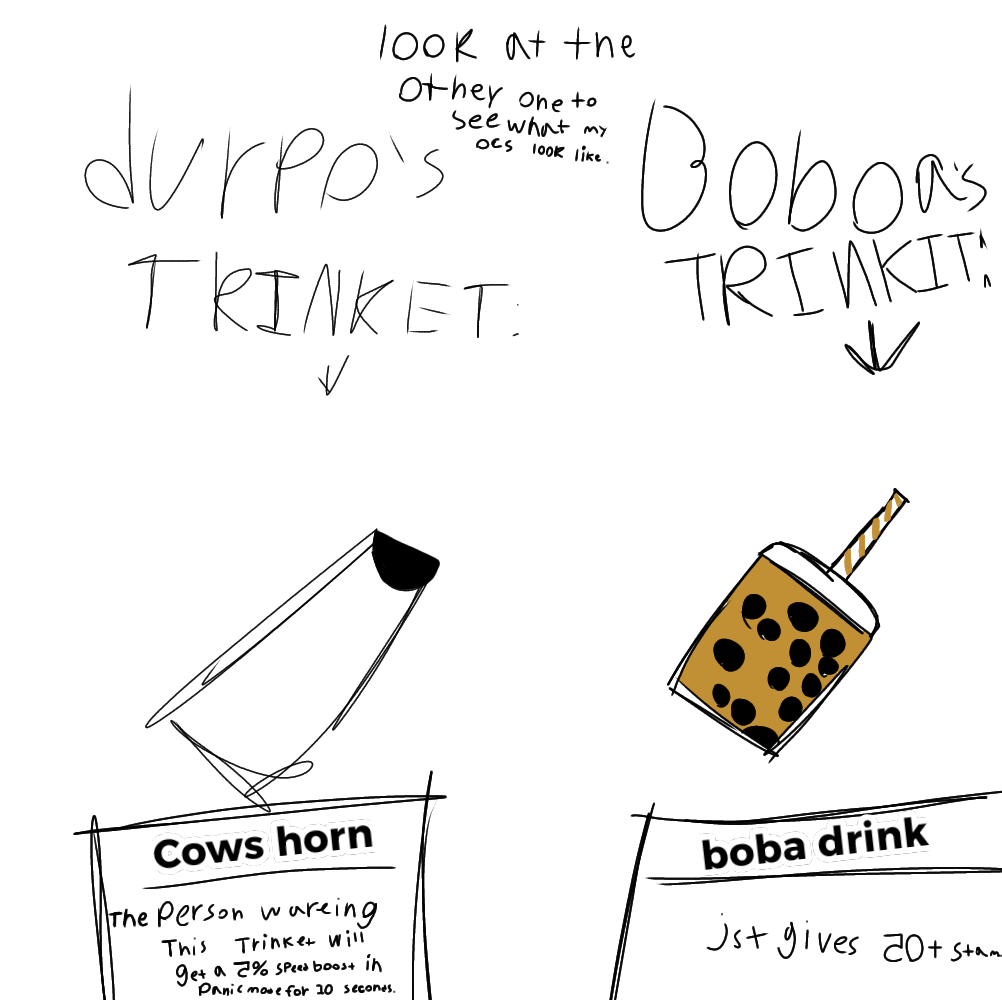 look at the
other one to
see what my
ocs look like.
durpo's
TRINKET:
Boboa's
TRINKIT:
Cows horn
The Person wareing
This Trinket will
get a 5% speed boost in
Panic mode for 10 seconds.
boba drink
jst gives 50+ stam